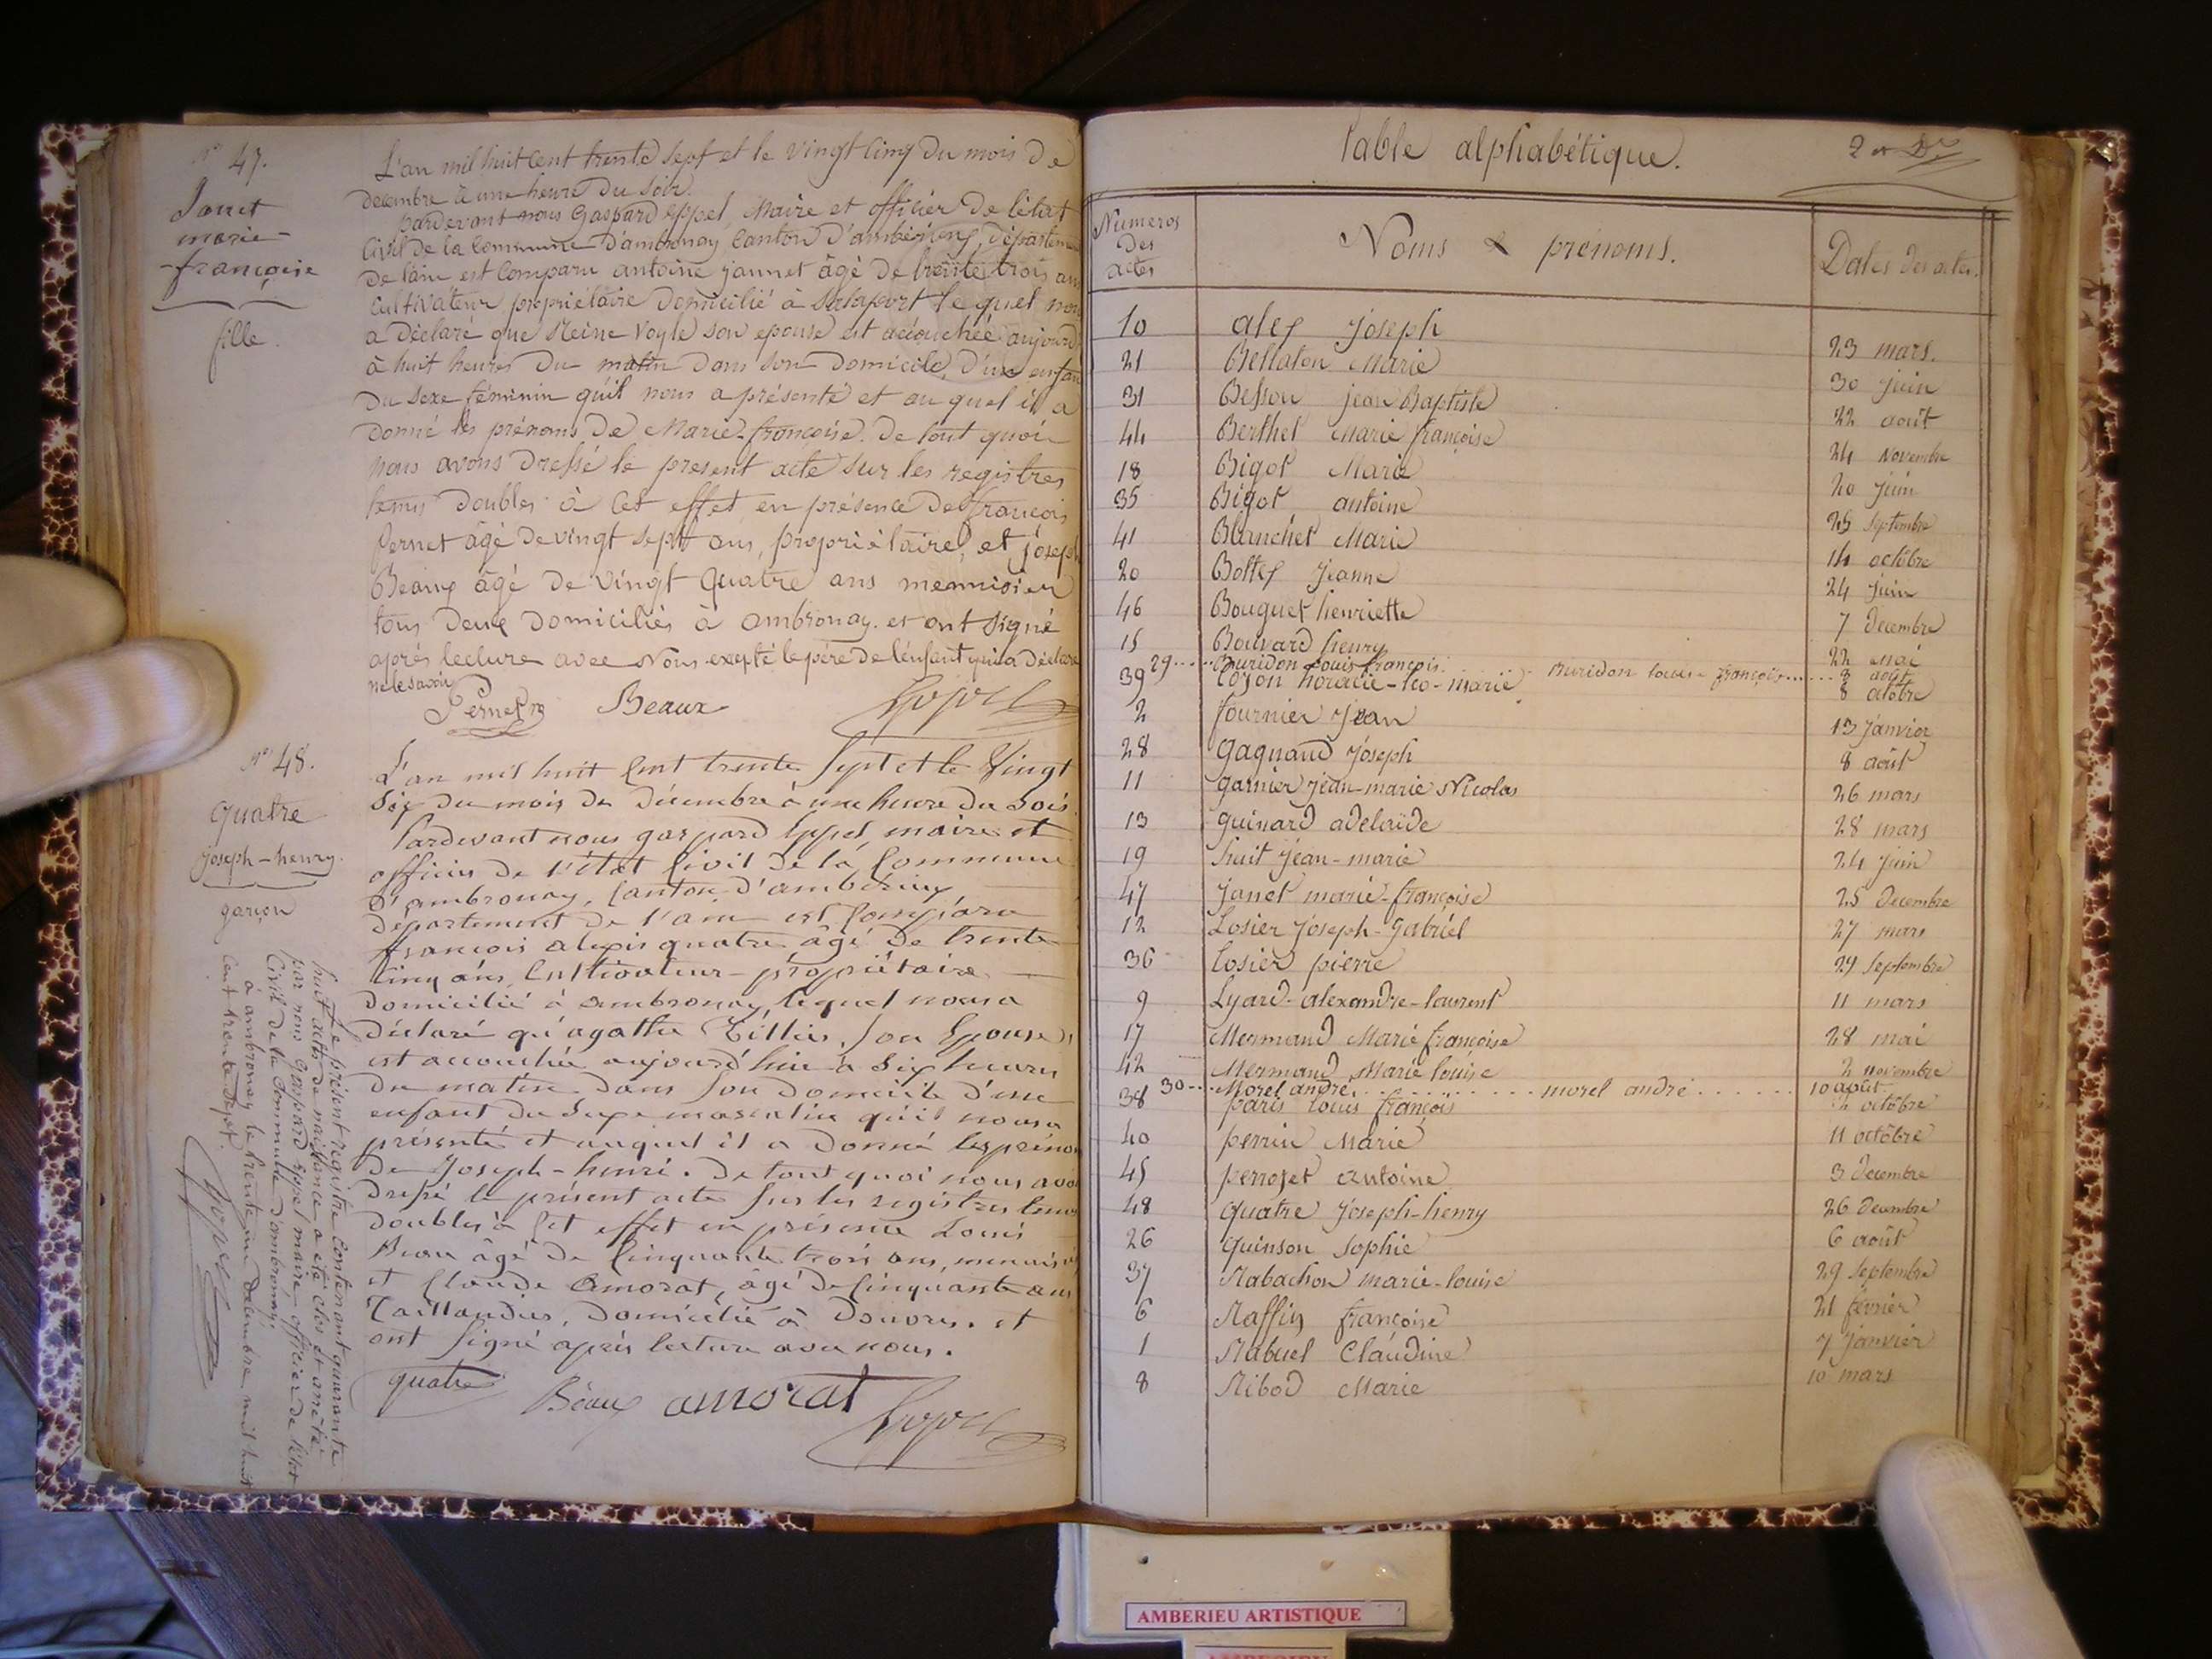 N° 47.
Janet
marie-
françoise
fille.
L'an mil huit cent trente sept et le vingt cinq du mois de
décembre à une heure du soir.
pardevant nous Gaspard Eppel, Maire et officier de l'état
civil de la commune d'ambronay canton d'ambérieux, départeme
de l'ain est comparu antoine jannet âgé de trente trois ans
cultivateur propriétaire domicilié à le quel nous
a déclaré que Reine Voyle son epouse est accouchée aujourd
à huit heures du matin dans son domicile, d'un enfan
du sexe féminin qu'il nous a présenté et au quel il a
donné les prénoms de Marie-françoise. de tout quoi
nous avons dressé le présent acte sur les registres
tenus doubles à cet effet, en présence de françois
Pernet âgé de vingt sept ans, propriétaire, et joseph
Beaux âgé de vingt quatre ans menuisier
tous deux domiciliés à ambronay. et ont signé
après lecture avec Nous excepté le père de l'enfant qui a déclaré
ne le savoir
Pernet Beaux Eppel
N° 48.
quatre
joseph-henry.
garçon
L'an mil huit cent trente sept et le vingt
six du mois de décembre à une heure du soir
Pardevant nous gaspard Eppel, maire et
officier de l'état civil de la commune
d'ambronay, canton d'ambérieux
département de l'ain est comparu
françois alexis quatre âgé de trente
cinq ans, cultivateur-propriétaire
domicilié à ambronay, lequel nous a
déclaré qu'agathe Tillier, son Epouse,
est accouchée aujourd'hui à six heures
du matin dans son domicile d'un
enfant du sexe masculin qu'il nous a
présenté et auquel il a donné les prénom
de Joseph-henri. de tout quoi nous avon
dressé le présent acte sur les registres tenus
doubles à cet effet en présence Louis
Beau âgé de cinquante trois ans, menuisi
et Claude Amorat, âgé de cinquante ans
Taillandier, domicilié à Douvres. et
ont signé après lecture avec nous.
quatre Béaux amorat Eppel
Le présent registre contenant quarante
huit actes de naissance a été clos et arrêté
par nous Gaspard Eppel maire, officier de l'état
Civil de la commune d'ambronay.
à ambronay le trente un décembre mil huit
cent trente sept.
Eppel
Table alphabétique.
2
Numeros des actes Noms & prénoms. Dates des actes.
10 alex Joseph 23 mars.
21 Bellaton Marie 30 juin
31 Besson jean Baptiste 22 août
44 Berthet Marie françoise 24 Novembre
18 Bigot Marie 20 juin
35 Bigot antoine 25 septembre
41 Blanchet Marie 14 octobre
20 Bottex Jeanne 24 juin
46 Bouquet henriette 7 décembre
15 Bouvard henry 22 mai
29 Buridon Louis françois Buridon Louis-françois 8 août
39 Coyon horacie-léo-marie 8 octobre
2 fournier Jean 13 janvier
28 Gagnaud Joseph 8 août
11 garnier Jean-marie Nicolas 26 mars
13 guinard adelaïde 28 mars
19 huit Jean-marie 24 juin
47 janet marie-françoise 25 décembre
12 Losier Joseph-Gabriel 27 mars
36 Losier pierre 29 septembre
9 Lyard-alexandre-laurent 11 mars
17 Mermand Marie françoise 28 mai
42 Mermand Marie louise 2 novembre
30 Morel andré morel andré 10 août
38 paris Louis françois 2 octobre
40 perrin Marie 11 octobre
45 perroset antoine 3 décembre
48 quatre Joseph-henry 26 décembre
26 quinson Sophie 6 août
37 Rabachon marie-louise 29 septembre
6 Raffin françoise 21 février
1 Rabuel Claudine 7 janvier
8 Ribod Marie 10 mars
AMBERIEU ARTISTIQUE